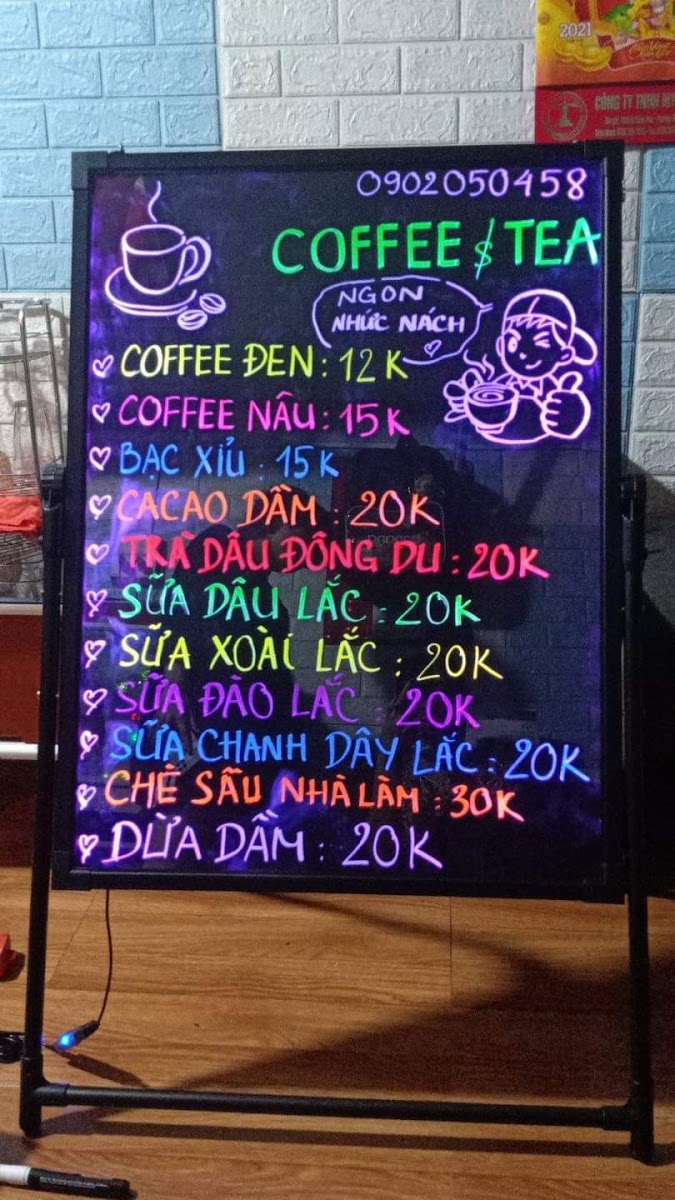 2021
CÔNG TY TNHH
0902050458
COFFEE & TEA
NGON
NHỨC NÁCH
COFFEE ĐEN : 12K
COFFEE NÂU : 15K
BẠC XỈU : 15K
CACAO DẦM : 20K
TRÀ DÂU ĐÔNG DU : 20K
SỮA DÂU LẮC : 20K
SỮA XOÀI LẮC : 20K
SỮA ĐÀO LẮC : 20K
SỮA CHANH DÂY LẮC : 20K
CHÈ SẦU NHÀ LÀM : 30K
DỪA DẦM : 20K